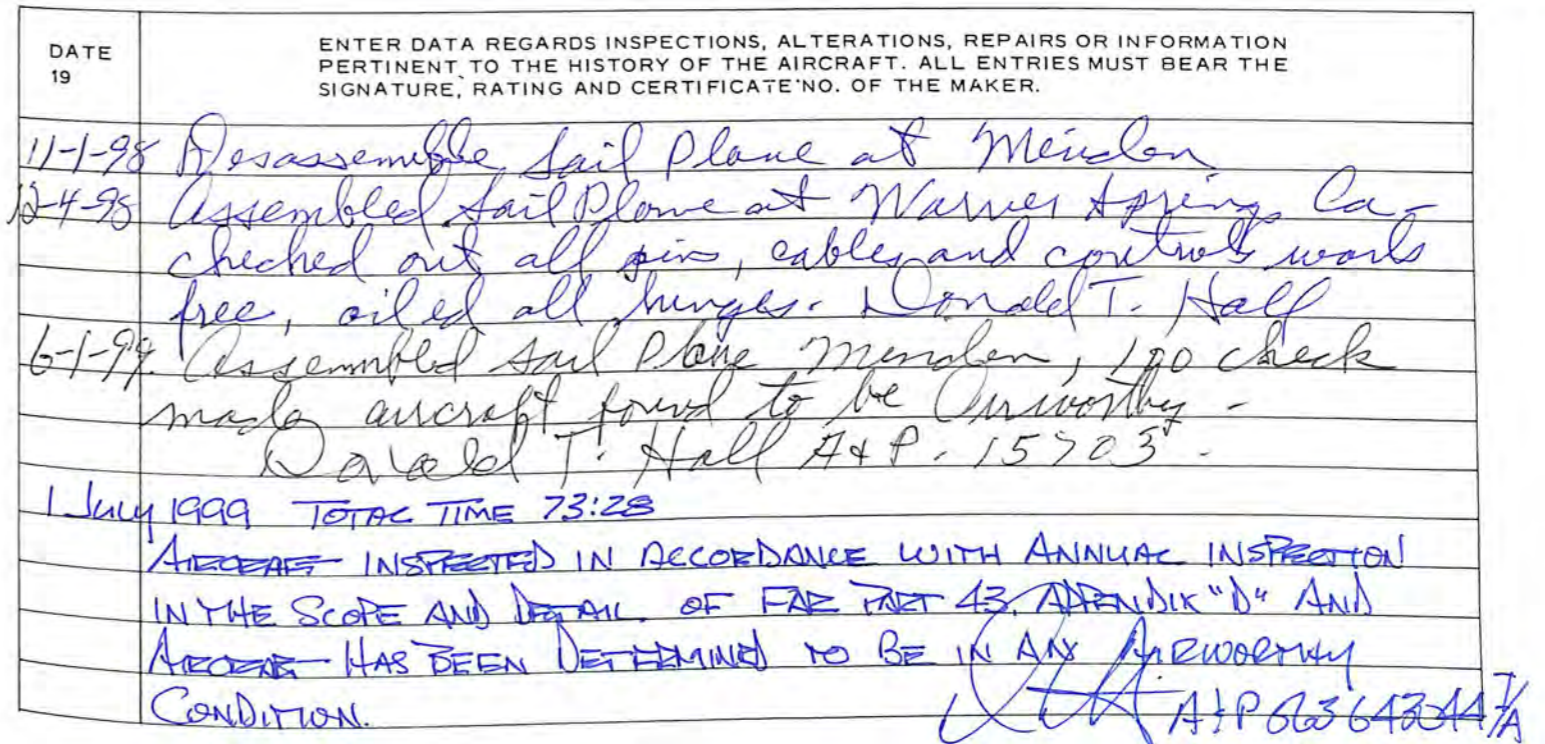 DATE
19
ENTER DATA REGARDS INSPECTIONS, ALTERATIONS, REPAIRS OR INFORMATION
PERTINENT TO THE HISTORY OF THE AIRCRAFT. ALL ENTRIES MUST BEAR THE
SIGNATURE, RATING AND CERTIFICATE NO. OF THE MAKER.
11-1-98 Desassemble Sail Plane at Minden
12-4-98 Assembled Sail Plane at Warner Springs Ca-
checked out all pins, cables and controls works
free, oiled all hinges. Donald T. Hall
6-1-99. Assembled Sail Plane Minden, 100 check
made aircraft found to be Airworthy -
Donald T. Hall A&P. 15703 -
1 July 1999 TOTAL TIME 73:28
AIRCRAFT INSPECTED IN ACCORDANCE WITH ANNUAL INSPECTION
IN THE SCOPE AND DETAIL OF FAR PART 43, APPENDIX "D" AND
AIRCRAFT HAS BEEN DETERMINED TO BE IN AN AIRWORTHY
CONDITION.
A&P 563643044 I/A